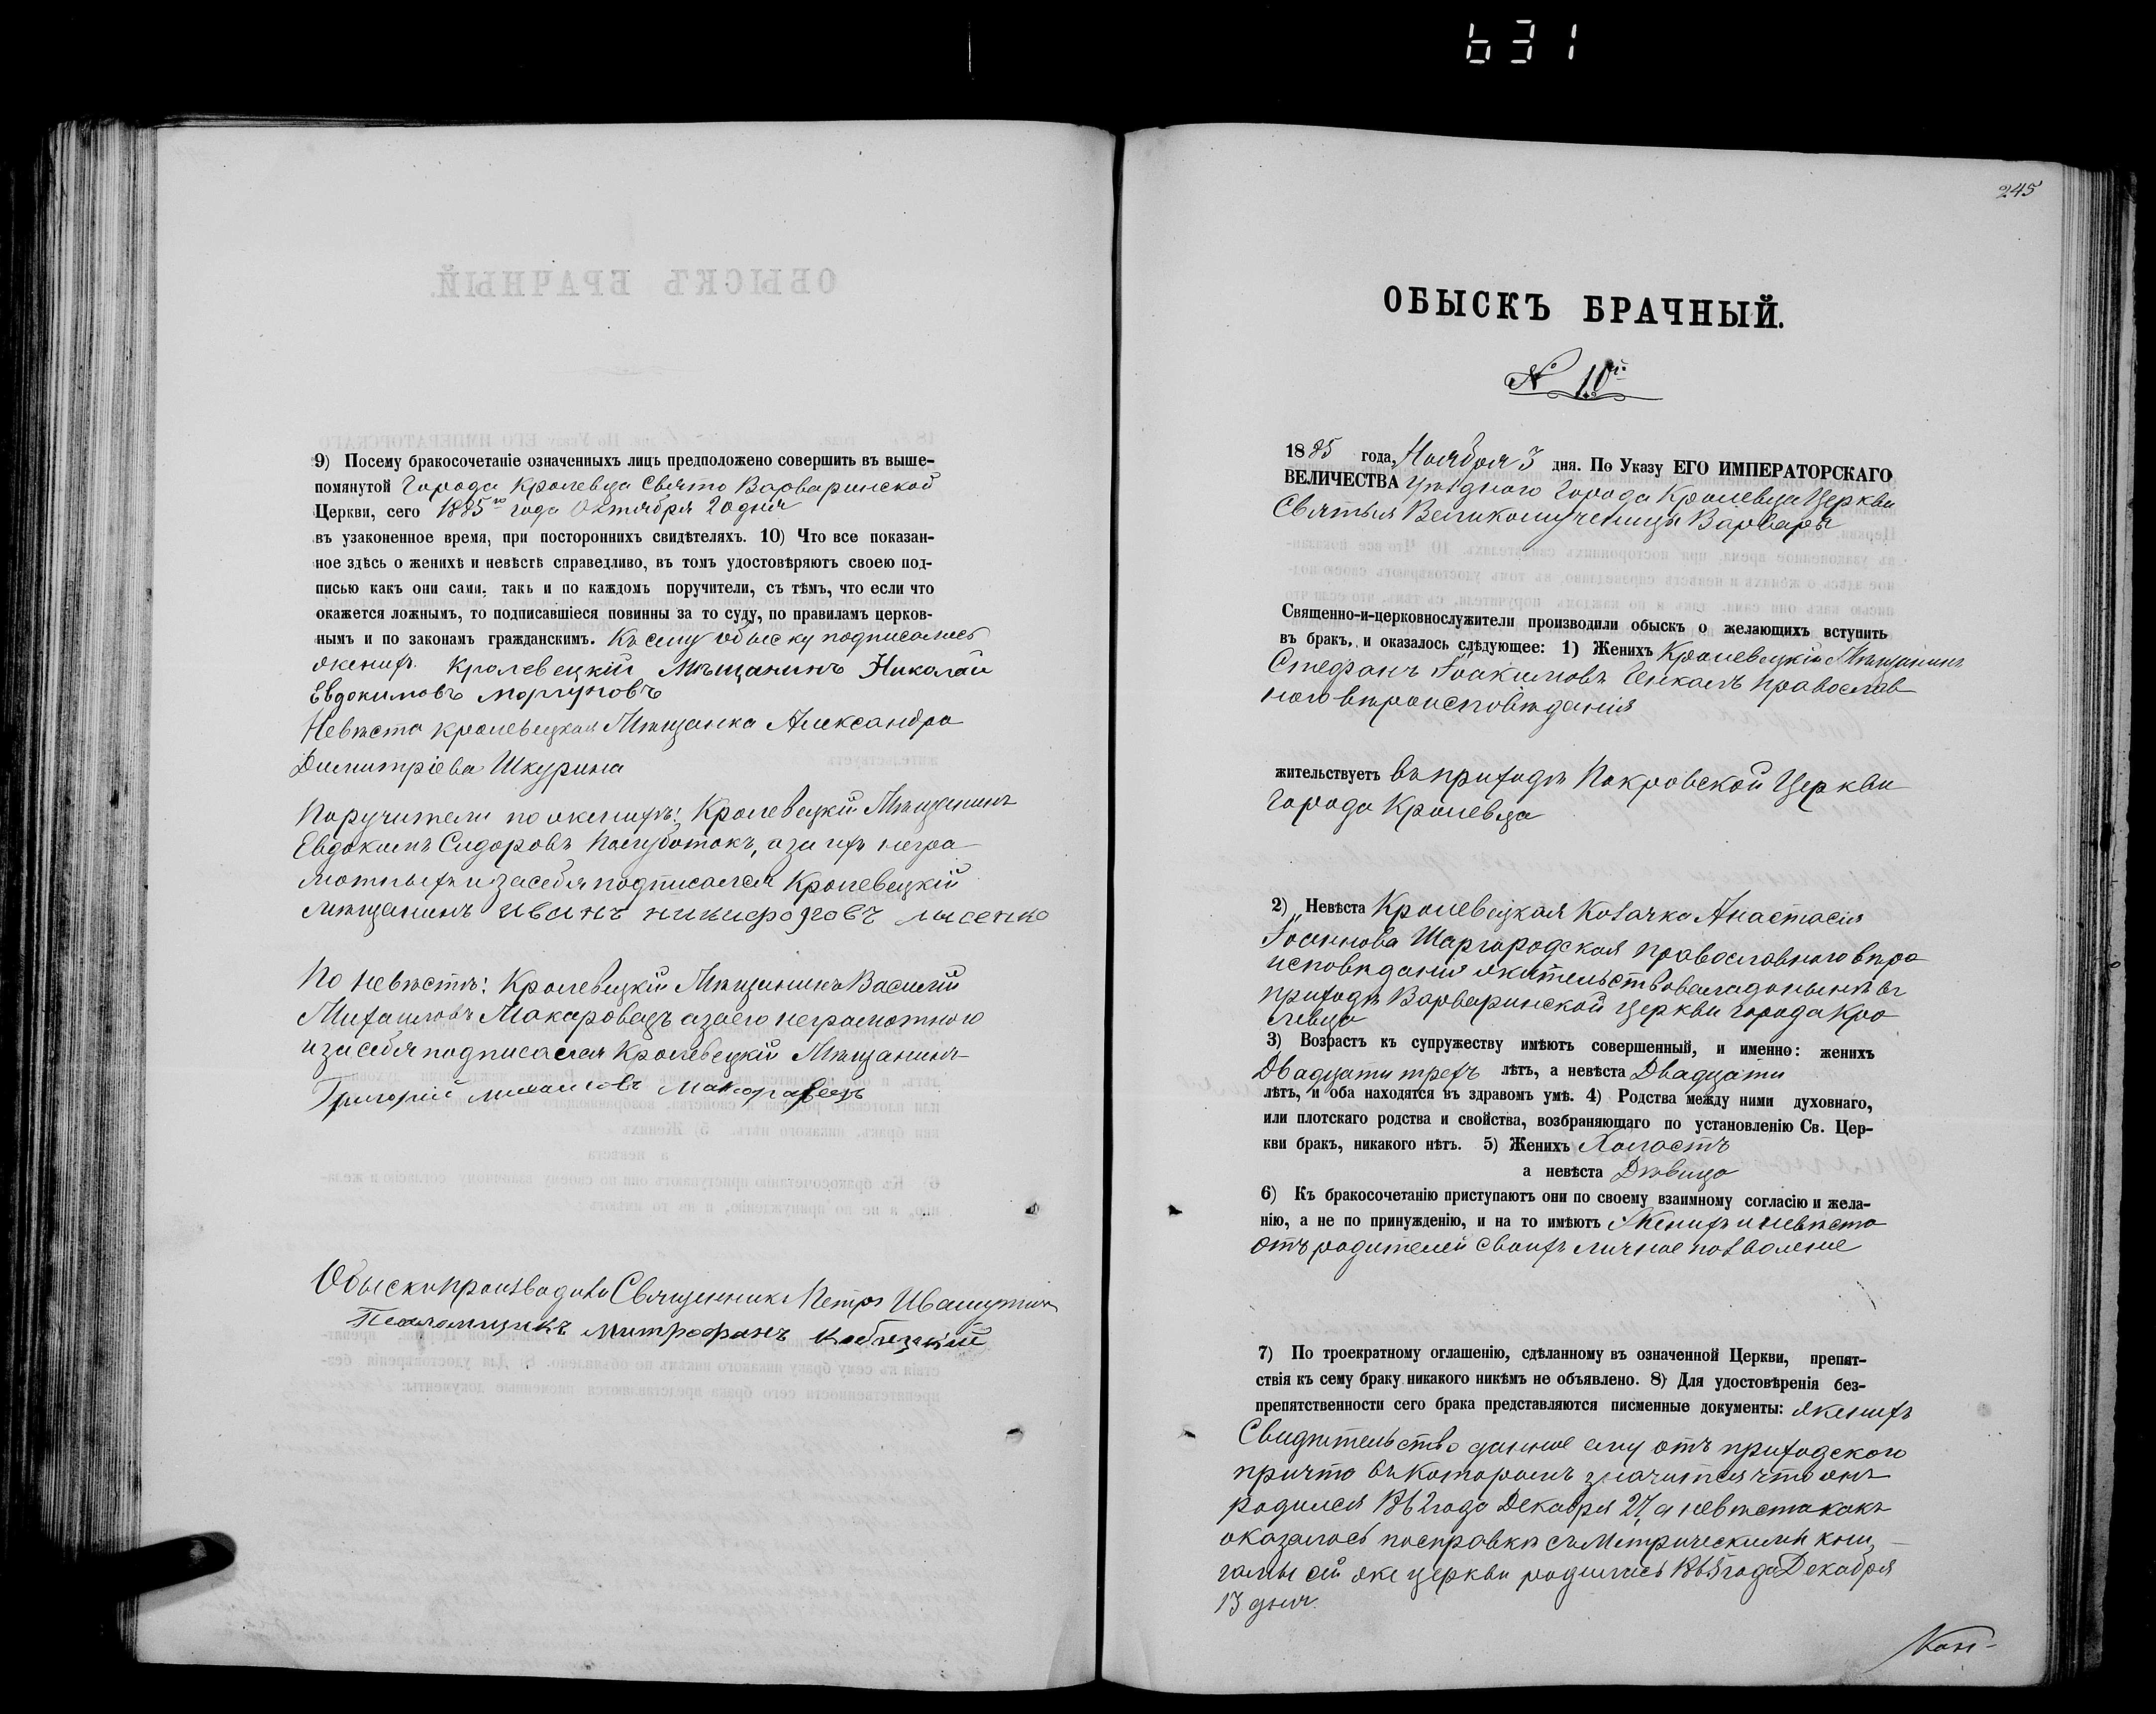 631
9) Посему бракосочетаніе означенныхъ лицъ предположено совершить въ выше-
помянутой Города Кролевца Свято Варваринской
Церкви, сего 1885го года Октября 20 дня
въ узаконенное время, при постороннихъ свидѣтеляхъ. 10) Что все показан-
ное здѣсь о женихѣ и невѣстѣ справедливо, въ томъ удостовѣряютъ своею под-
писью какъ они сами, такъ и по каждомъ поручители, съ тѣмъ, что если что
окажется ложнымъ, то подписавшіеся повинны за то суду, по правиламъ церков-
нымъ и по законамъ гражданскимъ. Къ сему обыску подписались
женихъ Кролевецкій Мѣщанинъ Николай
Евдокимовъ Моргуновъ
Невѣста Кролевецкая Мѣщанка Александра
Димитріева Шкурина
Поручители по женихѣ: Кролевецкій Мѣщанинъ
Евдокимъ Сидоровъ Полуботокъ, а за ихъ негра-
мотныхъ и за себя подписался Кролевецкій
мѣщанинъ иванъ никифоровъ лисенко
По невѣстѣ: Кролевецкій Мѣщанинъ Василій
Михаиловъ Макаровецъ а за его неграмотного
и за себя подписался Кролевецкій Мѣщанинъ
Григорій михаиловъ Макаровецъ
Обыскъ производили Священникъ Петръ
Псаломщикъ Митрофанъ
245
ОБЫСКЪ БРАЧНЫЙ.
№ 10й
1885 года, Ноября 3 дня. По Указу ЕГО ИМПЕРАТОРСКАГО
ВЕЛИЧЕСТВА Уѣзднаго Города Кролевца Церкви
Святыя Великомученицы Варвары
Священно-и-церковнослужители производили обыскъ о желающихъ вступить
въ бракъ, и оказалось слѣдующее: 1) Женихъ Кролевецкій Мѣщанинъ
Стефанъ Іоакимовъ православ-
ного вѣроисповѣданія
жительствуетъ въ приходѣ Покровской Церкви
Города Кролевца
2) Невѣста Кролевецкая Козачка Анастасія
Іоаннова Шаргородская православного вѣро
исповѣданія жительствовала донынѣ въ
приходѣ Варваринской церкви города Кро
левца
3) Возрастъ къ супружеству имѣютъ совершенный, и именно: женихъ
Двадцати трехъ лѣтъ, а невѣста Двадцати
лѣтъ, и оба находятся въ здравомъ умѣ. 4) Родства между ними духовнаго,
или плотскаго родства и свойства, возбраняющаго по установленію Св. Цер-
кви бракъ, никакого нѣтъ. 5) Женихъ Холостъ
а невѣста Дѣвица
6) Къ бракосочетанію приступаютъ они по своему взаимному согласію и жела-
нію, а не по принужденію, и на то имѣютъ Женихъ и невѣста
отъ родителей своихъ личное позволеніе
7) По троекратному оглашенію, сдѣланному въ означенной Церкви, препят-
ствія къ сему браку никакого никѣмъ не объявлено. 8) Для удостовѣренія без-
препятственности сего брака представляются писменные документы: женихъ
Свидѣтельство данное ему отъ приходского
причта въ которомъ значится что онъ
родился 1862 года Декабря 27, а невѣста какъ
оказалось по справкѣ съ Метрическими кни-
гами сей же церкви родилась 1865 года Декабря
13 дня.